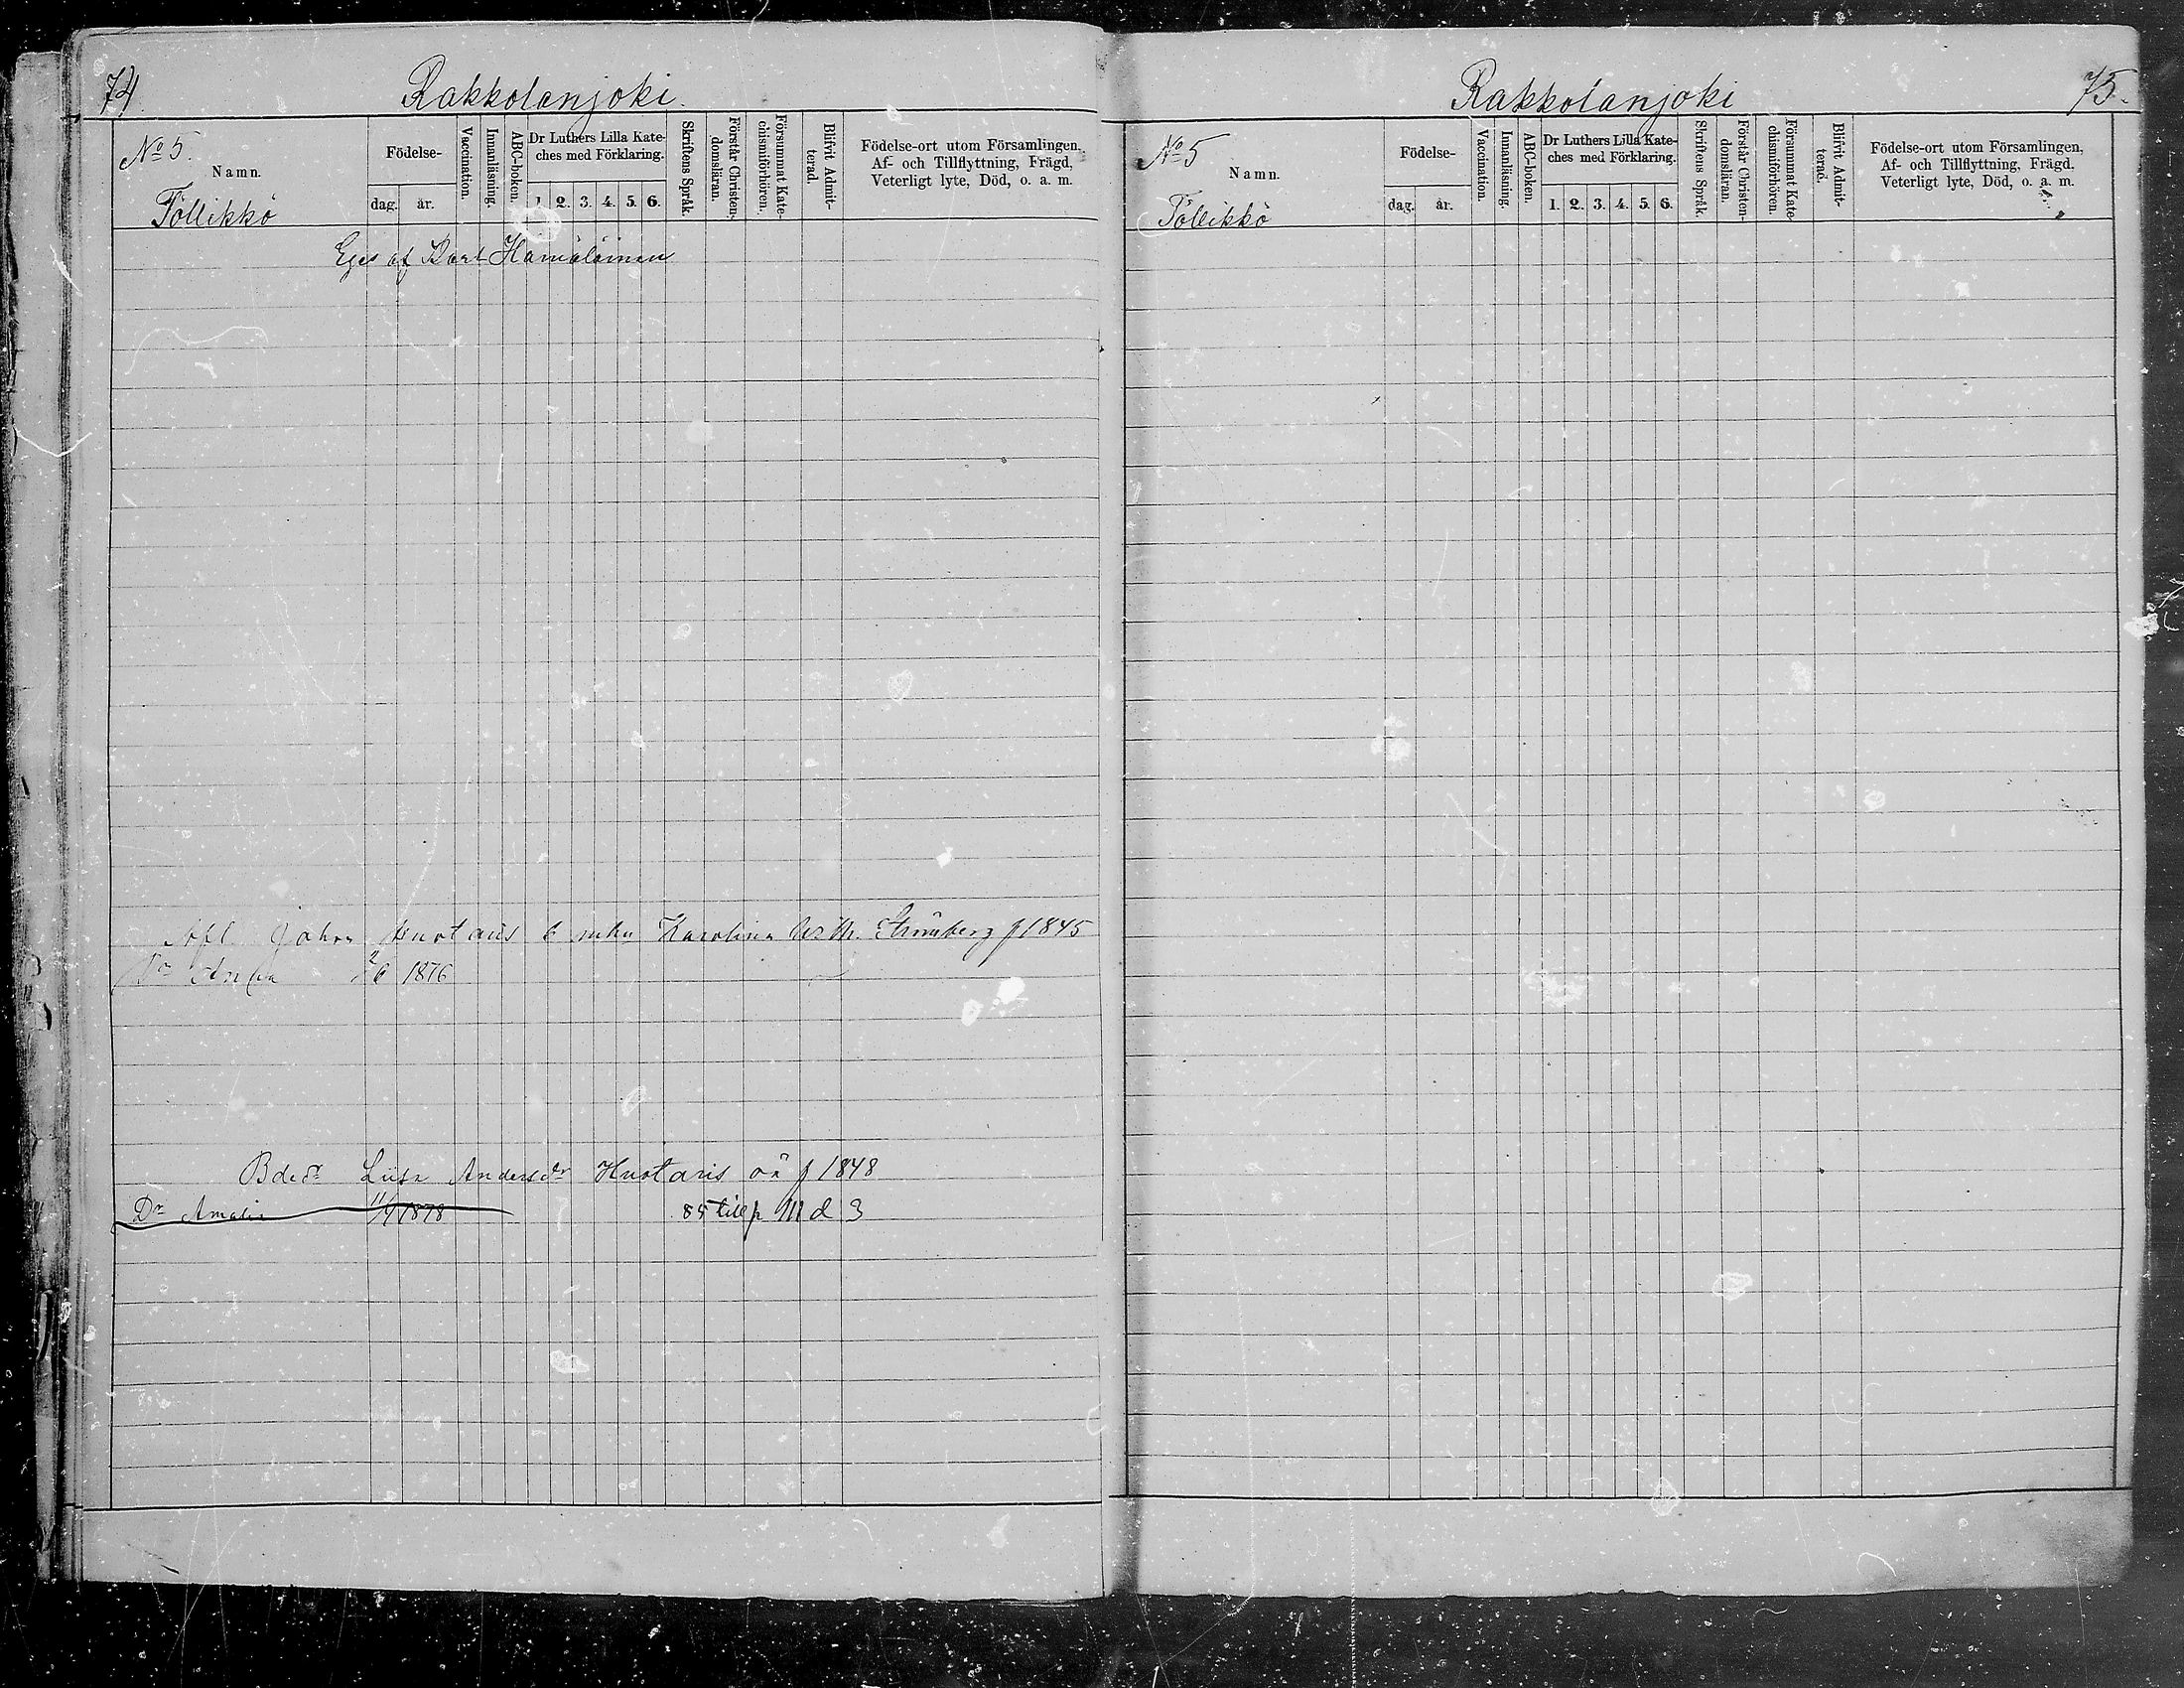 74.
Rakkolanjoki.
No 5.
Namn.
Töllikkö
Födelse-
dag.
år.
Vaccination.
Innanläsning.
ABC-boken.
Dr Luthers Lilla Kate-
ches med Förklaring.
1. 2. 3. 4. 5. 6.
Skriftens Språk.
Förstår Christen-
domsläran.
Försummat Kate-
chismiförhören.
Blifvit Admit-
terad.
Födelse-ort utom Församlingen,
Af- och Tillflyttning, Frägd,
Veterligt lyte, Död, o. a. m.
Eges af Karl Hämäläinen
Afl. Johan Huotaris Karolina Strömberg f 1845
Dr 26 1876
Liisa Andersdr Huotaris oä f 1848
Dr Amalia 11/4 1878 85 till p 111 d 3
Rakkolanjoki
75.
No 5
Namn.
Töllikkö
Födelse-
dag.
år.
Vaccination.
Innanläsning.
ABC-boken.
Dr Luthers Lilla Kate-
ches med Förklaring.
1. 2. 3. 4. 5. 6.
Skriftens Språk.
Förstår Christen-
domsläran.
Försummat Kate-
chismiförhören.
Blifvit Admit-
terad.
Födelse-ort utom Församlingen,
Af- och Tillflyttning, Frägd.
Veterligt lyte, Död, o. a. m.